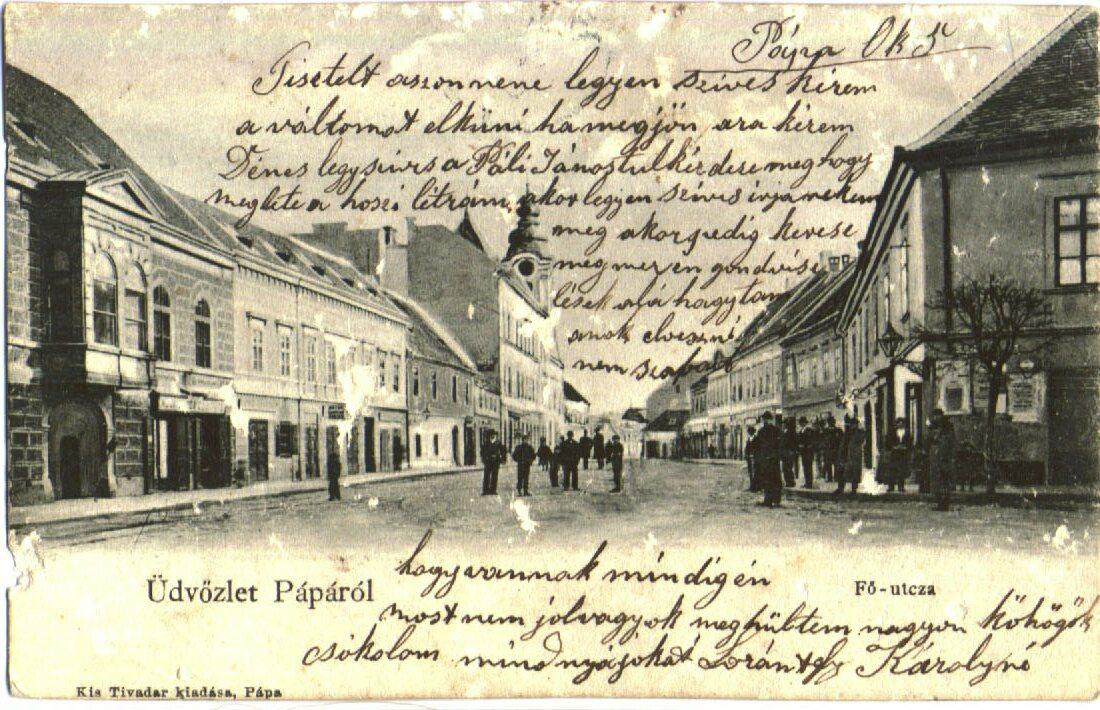 Pápa Ok 5
Tisztelt aszonnene legyen szives kérem
a váltomat elküni ha megjön, ara kérem
Dénes legyszives a Páli Jánostul kérdeze meg hogy
meglete a hoszi létrám, akor legyen szives irja nekem
meg akorpedig kevese
meg mezen gondvise
lések alá hagytam
anak elveszni
nem szabad
hogy vannak mindig én
most nem jolvagyok meghültem nagyon köhögök
csokolom mind nyájokat Lorántfy Károlyné
Üdvözlet Pápáról
Fő-utcza
Kis Tivadar kiadása, Pápa